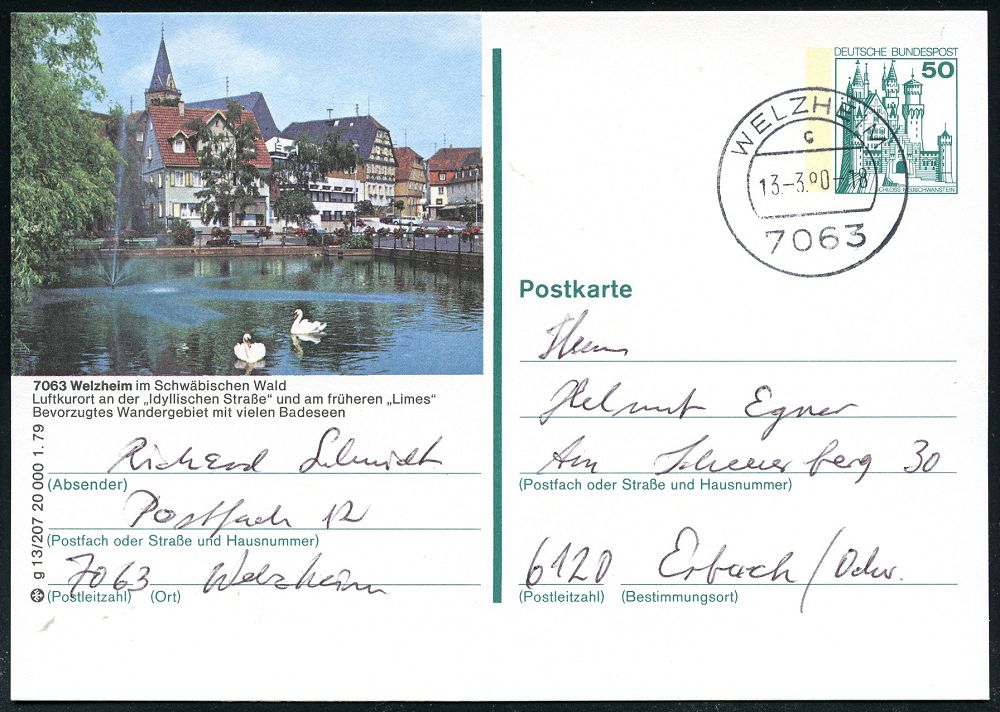 DEUTSCHE BUNDESPOST
50
SCHLOSS NEUSCHWANSTEIN
WELZHEIM
c
13.-3.80-18
7063
7063 Welzheim im Schwäbischen Wald
Luftkurort an der „Idyllischen Straße“ und am früheren „Limes“
Bevorzugtes Wandergebiet mit vielen Badeseen
g 13/207 20 000 1.79
Richard Schmidt
(Absender)
Postfach 12
(Postfach oder Straße und Hausnummer)
7063 Welzheim
(Postleitzahl) (Ort)
Postkarte
Herrn
Helmut Egner
Am Scheuerberg 30
(Postfach oder Straße und Hausnummer)
6120 Erbach/Odw.
(Postleitzahl) (Bestimmungsort)